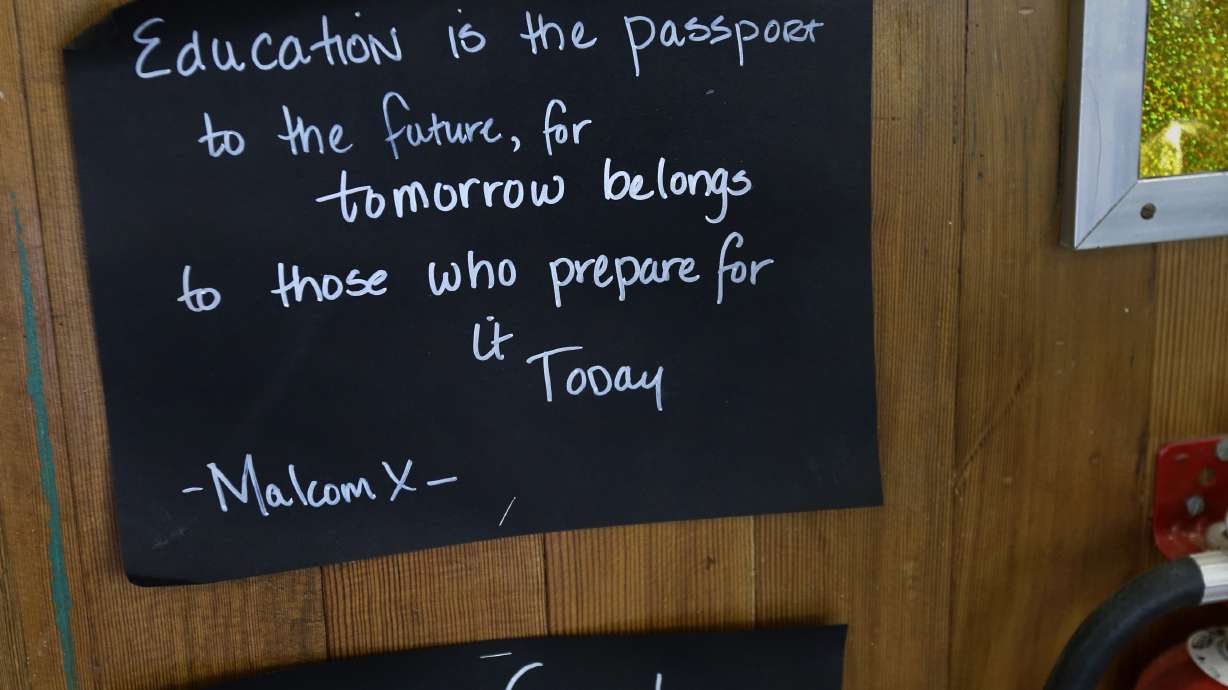 Education is the passport
to the future, for
tomorrow belongs
to those who prepare for
it
Today
-Malcom X-